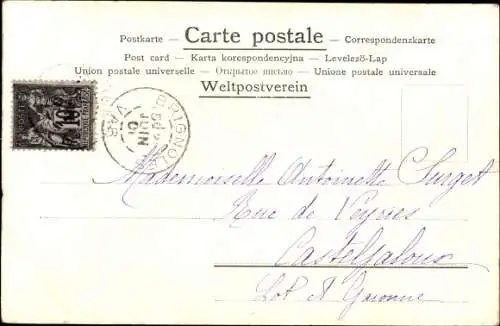 Postkarte — Carte postale — Correspondenzkarte
Post card — Karta korespondencyjna — Levelező-Lap
Union postale universelle — Открытое письмо — Unione postale universale
Weltpostverein
BRIGNOLES
JUIN
VAR
Mademoiselle Antoinette Surget
Rue de Veyries
Casteljaloux
Lot & Garonne